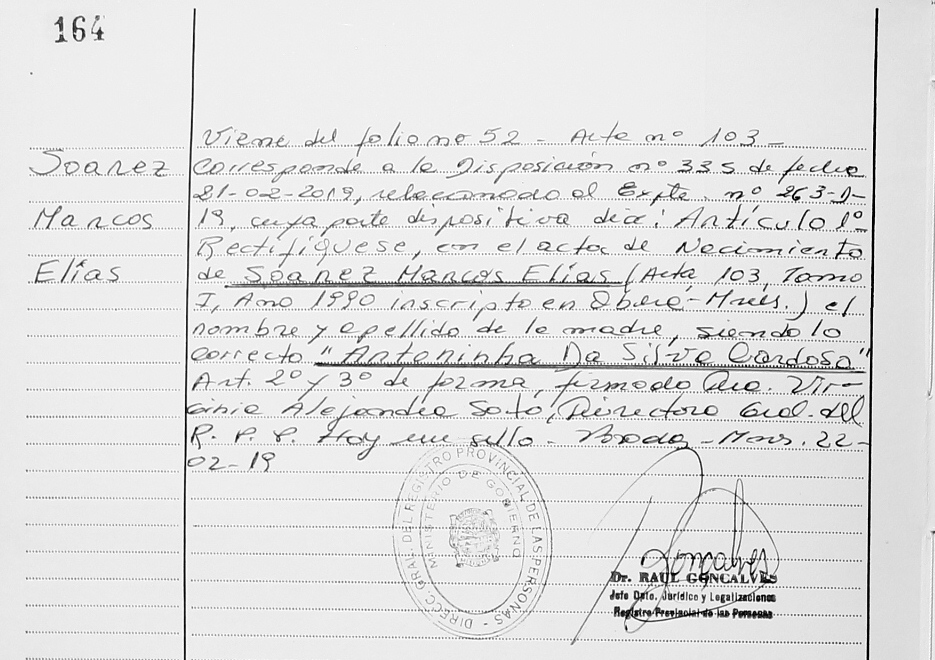 164
Viene del folio nº 52 - Acta nº 103 -
Soarez
Corresponde a la Disposición nº 335 de fecha
21-02-2019, relacionado al Expte. nº 263-D-
Marcos
19, cuya parte dispositiva dice: Artículo 1º-
Rectifíquese, en el acta de Nacimiento
Elías
de Soarez Marcos Elías (Acta 103, Tomo
I, Año 1990 inscripto en Oberá-Mnes.) el
nombre y apellido de la madre, siendo lo
correcto "Antoninha Da Silva Cardoso"
Art. 2º y 3º de forma, firmado Dra. Vir-
ginia Alejandra Soto, Directora Gral. del
R. P. P. Hay un sello - Posadas - Mnes. 22-
02-19
DIRECC. GRAL. DEL REGISTRO PROVINCIAL DE LAS PERSONAS -
MINISTERIO DE GOBIERNO
Goncalves
Dr. RAUL GONCALVES
Jefe Dpto. Jurídico y Legalizaciones
Registro Provincial de las Personas